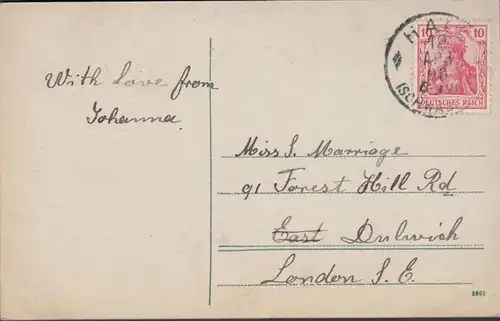 With love from
Johanna.
10 10
DEUTSCHES REICH
HA
12
(SCHWA
Miss S. Marriage
91 Forest Hill Rd
East Dulwich
London S.E.
2861